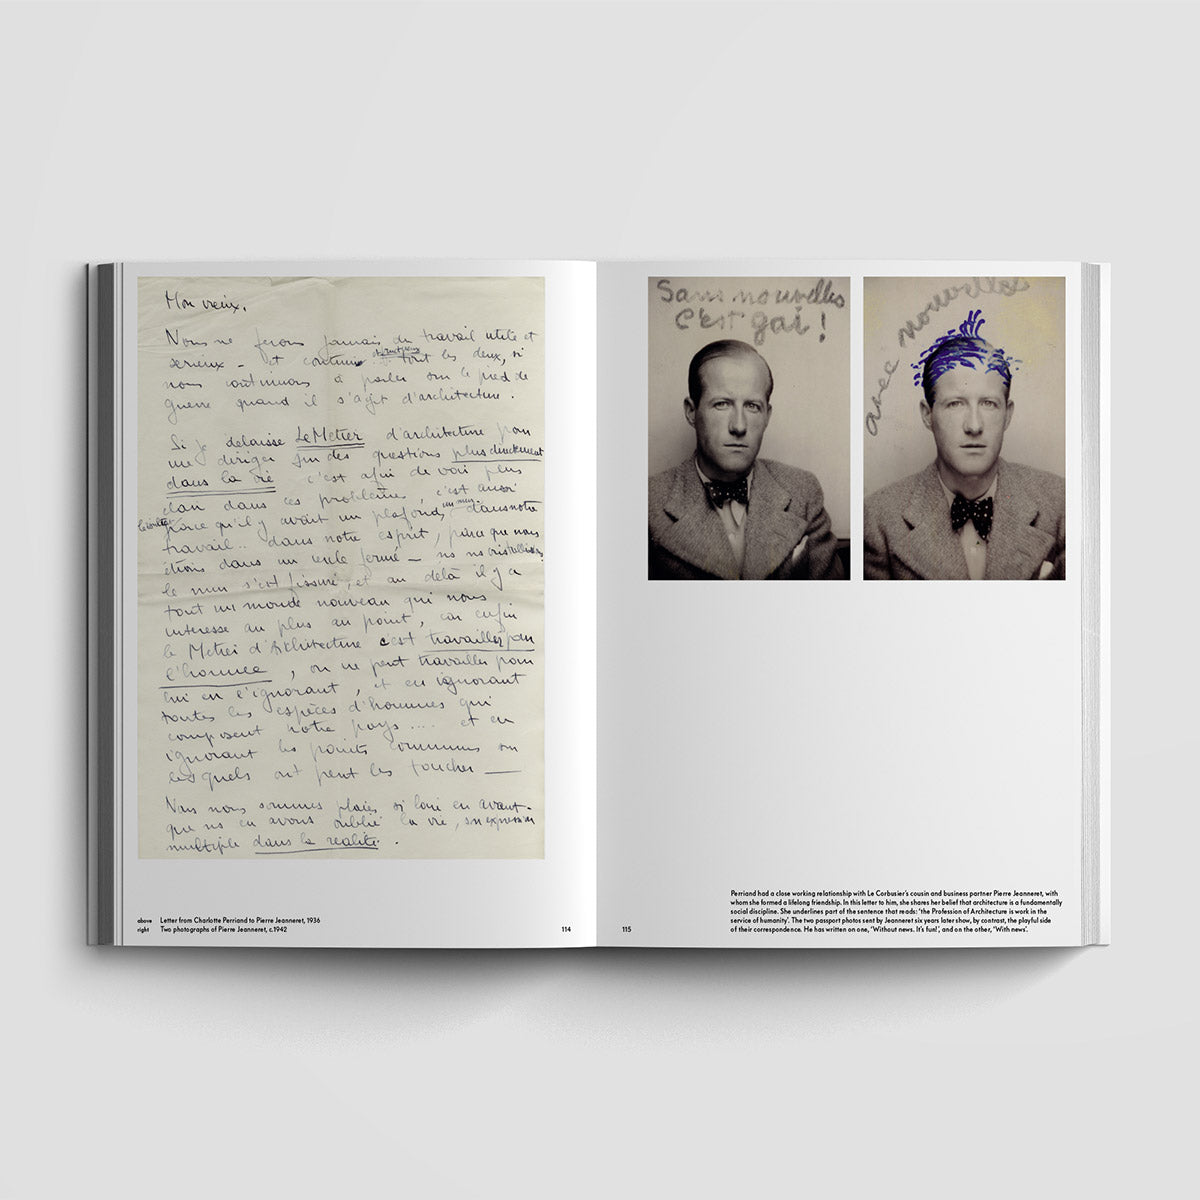 Mon vieux,
Nous ne ferons jamais du travail utile et
serieux - et constructeur tout les deux, si
nous continuons à parler sur le pied de
guerre quand il s'agit d'architecture.
Si je delaisse Le Métier d'architecture pour
me diriger sur des questions plus directement
dans la vie c'est afin de voir plus
clair dans ces problèmes, c'est aussi
parce qu'il y avait un plafond, un mur dans notre
travail.. dans notre esprit, parce que nous
étions dans un cercle fermé - ns ns
le mur s'est fissuré, et au delà il y a
tout un monde nouveau qui nous
interesse au plus au point, car enfin
le Metier d'Architecture c'est travailler pour
l'homme, on ne peut travailler pour
lui en l'ignorant, et en ignorant
toutes les espèces d'hommes qui
composent notre pays.... et en
ignorant les points communs sur
lesquels ont peut les toucher —
Nous nous sommes placés si loin en avant-
que ns en avons oublié la vie, son expression
multiple dans la realité.
above Letter from Charlotte Perriand to Pierre Jeanneret, 1936
right Two photographs of Pierre Jeanneret, c.1942
114
Sans nouvelles
C'est gai !
avec nouvelles
115
Perriand had a close working relationship with Le Corbusier's cousin and business partner Pierre Jeanneret, with
whom she formed a lifelong friendship. In this letter to him, she shares her belief that architecture is a fundamentally
social discipline. She underlines part of the sentence that reads: 'the Profession of Architecture is work in the
service of humanity'. The two passport photos sent by Jeanneret six years later show, by contrast, the playful side
of their correspondence. He has written on one, 'Without news. It's fun!', and on the other, 'With news'.